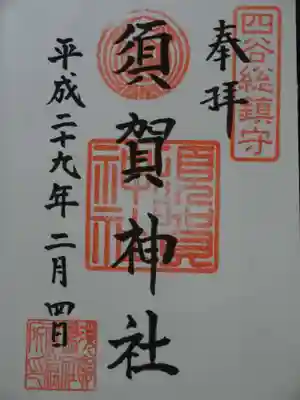 四谷総鎮守
奉拝
須賀神社
平成二十九年二月四日